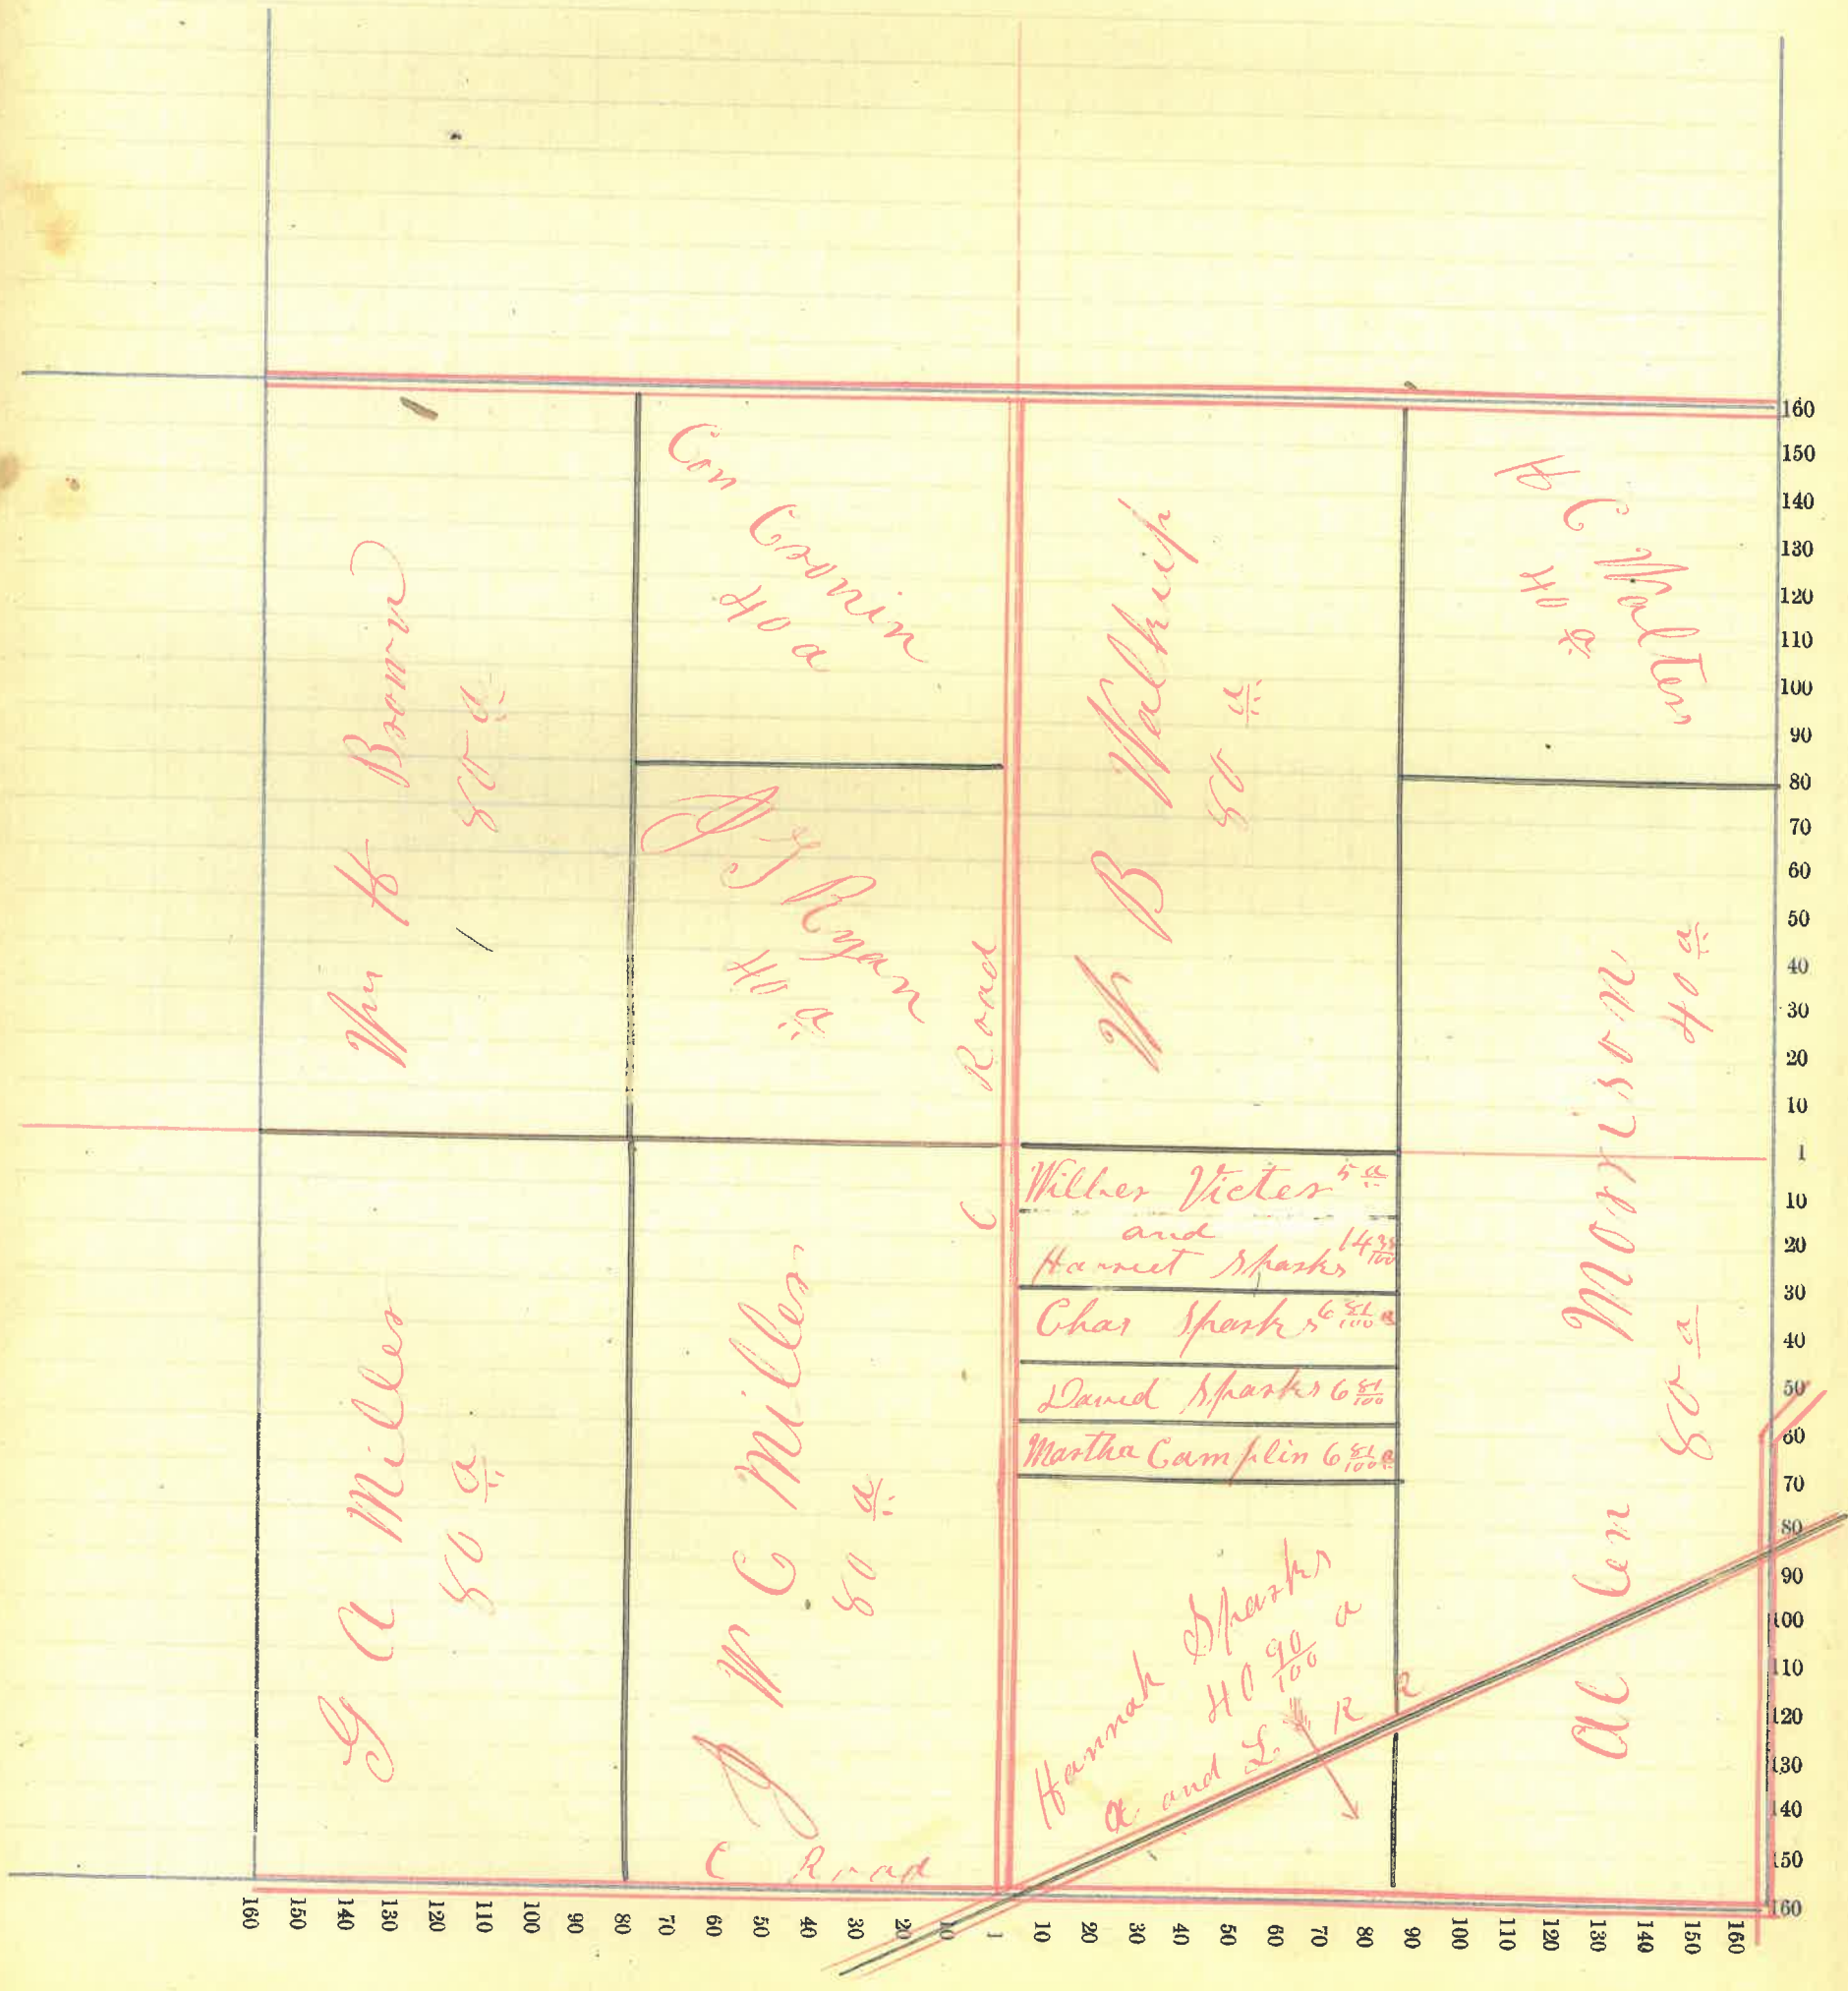 Wm H Brown
80 a
Con Cronin
40 a
J T Ryan
40 a
C Road
W B Walkup
80 a
H C Walters
40 a
Allen Morrison
40 a
80 a
Wilber Victer 5 a
and
Harriet Sparks 14 38/100
Chas Sparks 6 81/100 a
David Sparks 6 81/100
Martha Camplin 6 81/100 a
Hannah Sparks
40 90/100 a
A and L R R
G A Miller
80 a
J W C Miller
80 a
C Road
160
150
140
130
120
110
100
90
80
70
60
50
40
30
20
10
1
10
20
30
40
50
60
70
80
90
100
110
120
130
140
150
160
160 150 140 130 120 110 100 90 80 70 60 50 40 30 20 10 1 10 20 30 40 50 60 70 80 90 100 110 120 130 140 150 160